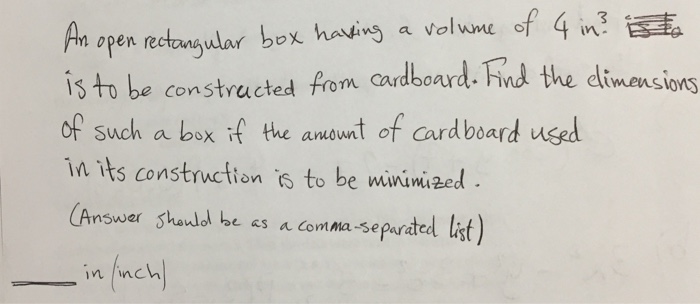 An open rectangular box having a volume of 4 in³
is to be constructed from cardboard. Find the dimensions
of such a box if the amount of cardboard used
in its construction is to be minimized.
(Answer should be as a comma-separated list)
____ in (inch)